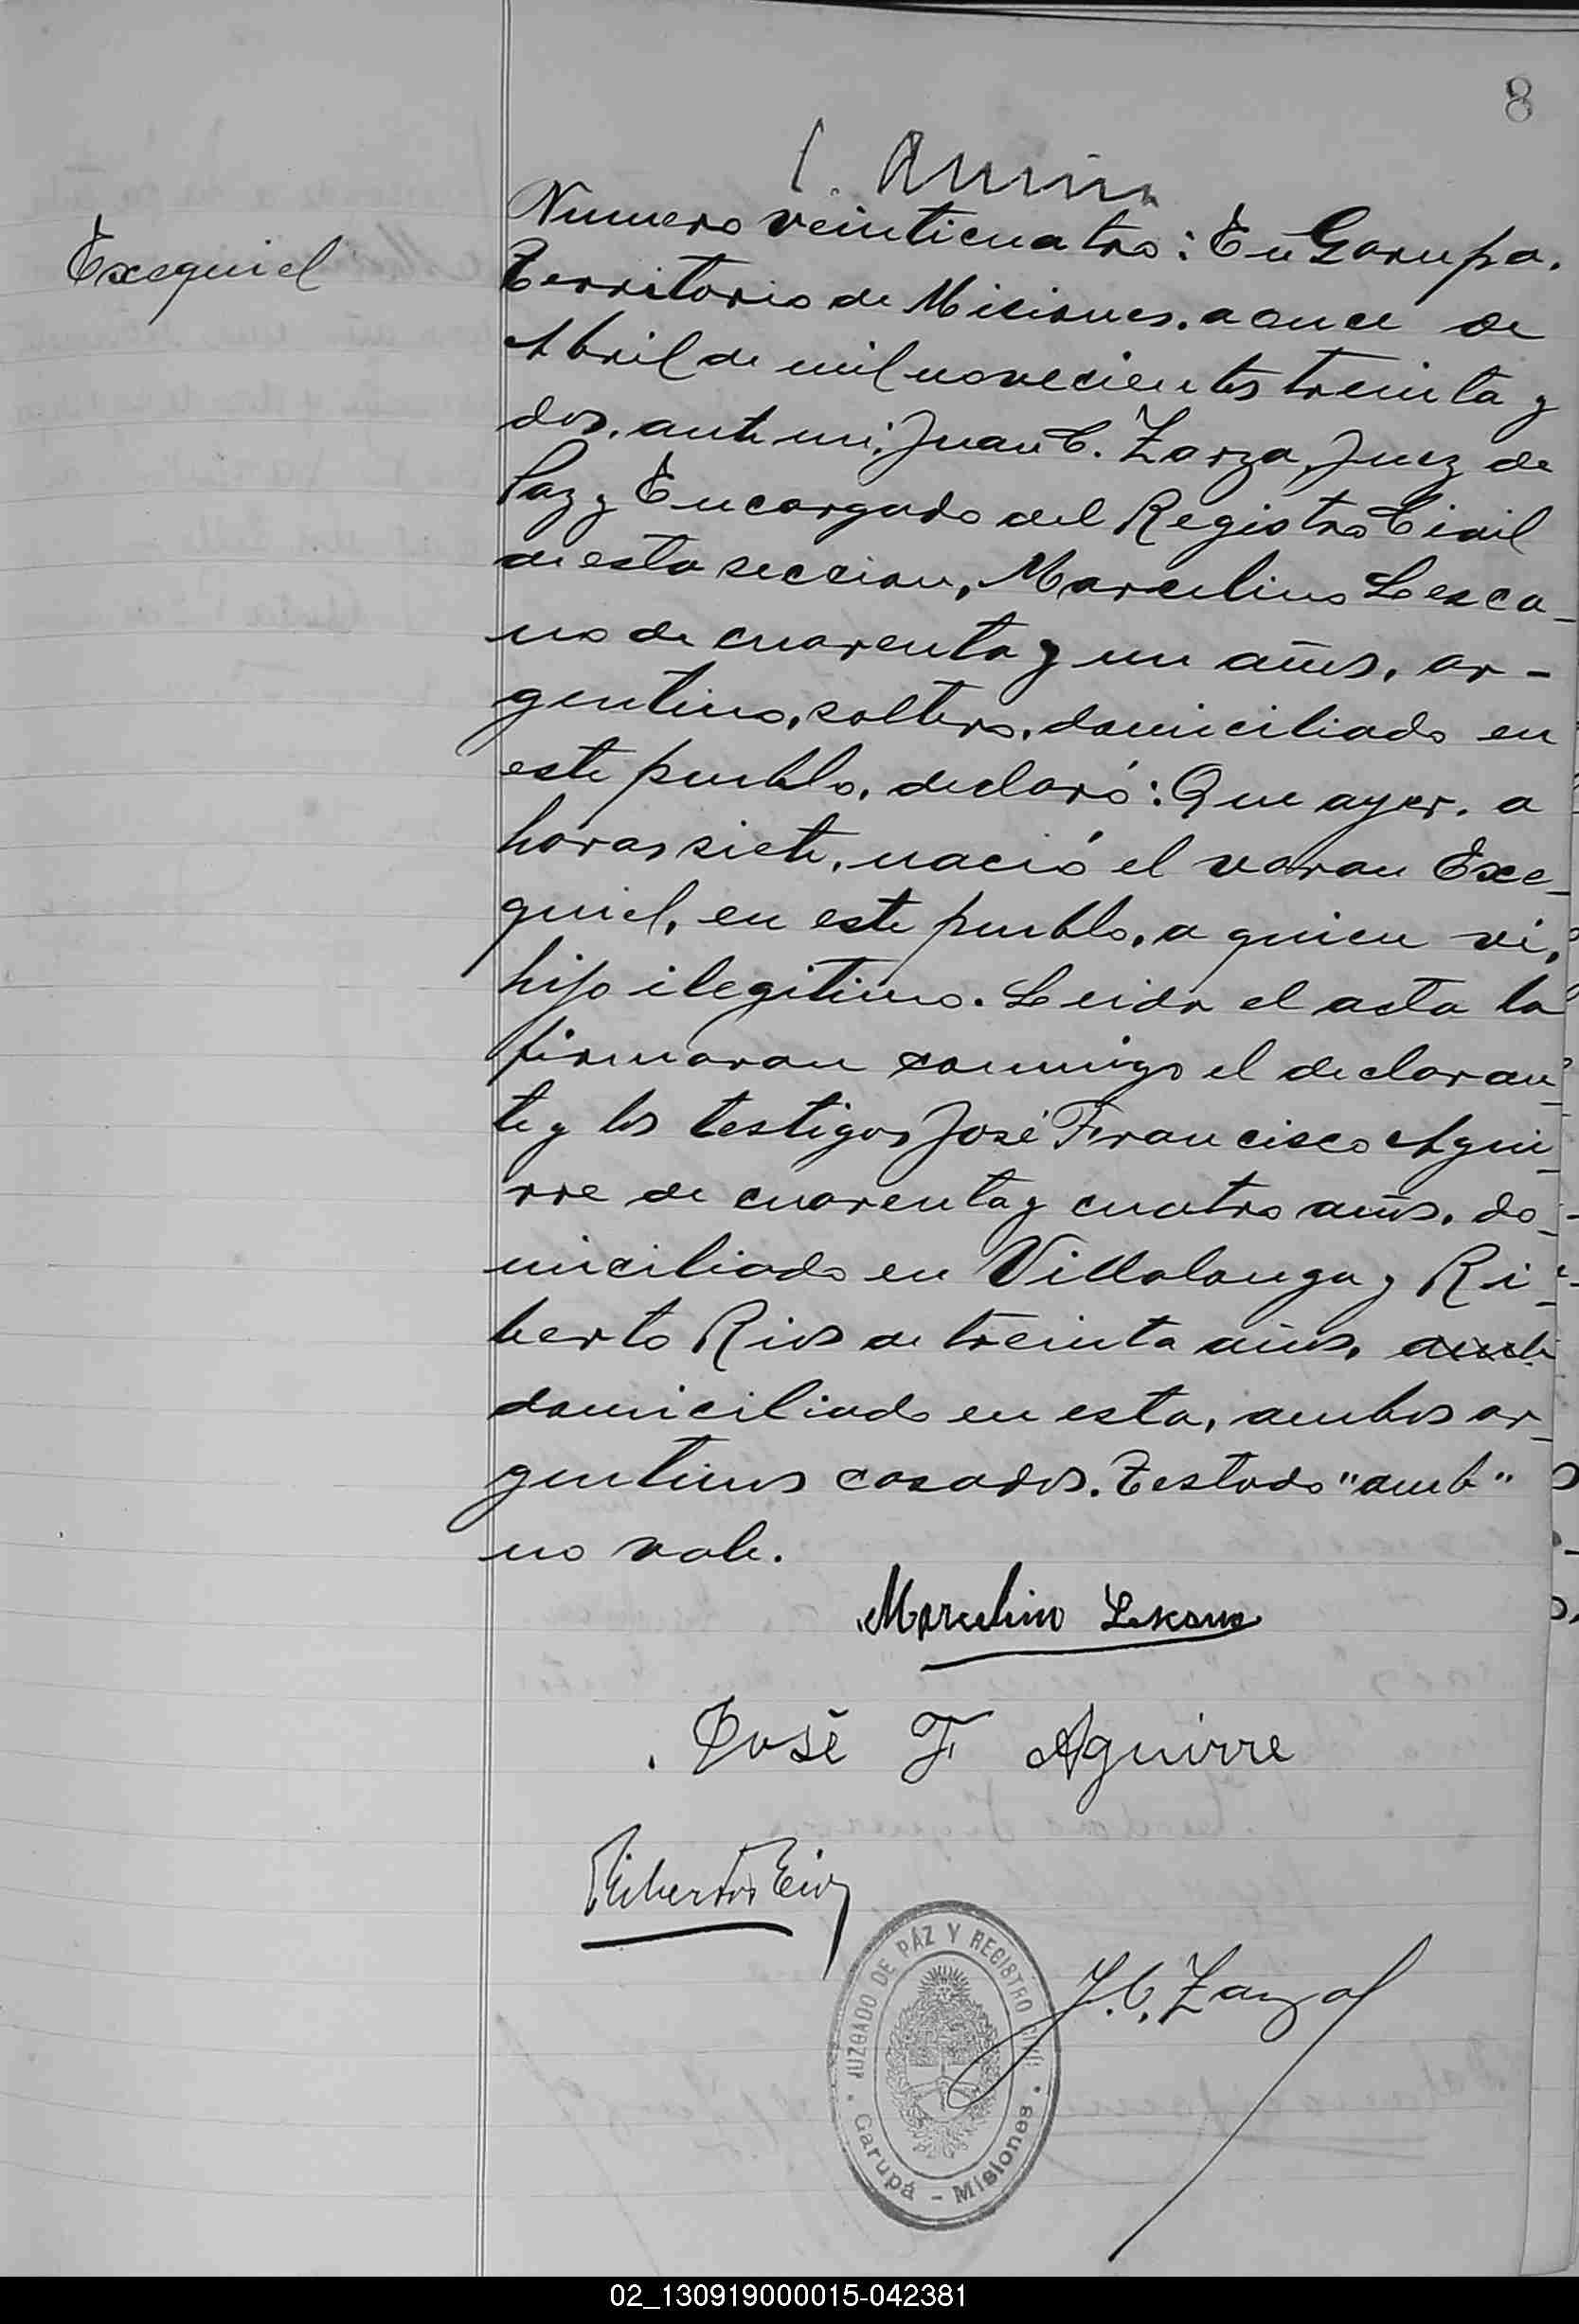 8
Exequiel
Numero veinticuatro: En Garupa.
Territorio de Misiones. a once de
Abril de mil novecientos treinta y
dos. ante mi, Juan C. Zarza, Juez de
Paz y Encargado del Registro Civil
de esta seccion, Marcelino Lesca-
no de cuarenta y un años, ar-
gentino, soltero, domiciliado en
este pueblo, declaró: Que ayer. a
horas siete, nació el varon Exe-
quiel, en este pueblo, a quien vi,
hijo ilegitimo. Leida el acta la
firmaron conmigo el declaran-
te y los testigos José Francisco Agui-
rre de cuarenta y cuatro años, do-
miciliado en Villalonga y Ri-
berto Rios de treinta años, amb
domiciliado en esta, ambos ar-
gentinos casados. Testado "amb"
no vale.
Marcelino Lescano
José F Aguirre
Riberto Rios
J. C. Zarza
JUZGADO DE PÁZ Y REGISTRO CIVIL
Garupá - Misiones
02_130919000015-042381